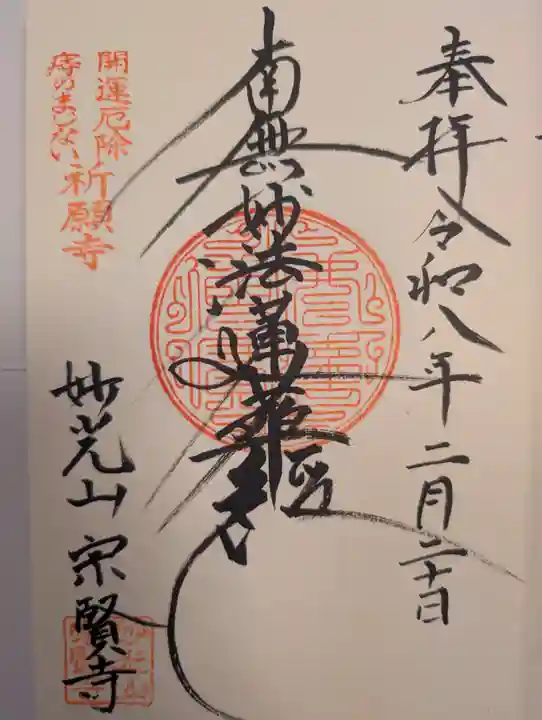 奉拝 令和八年二月二十日
南無妙法蓮華経
開運厄除
痔のまじない
祈願寺
妙光山 宗賢寺